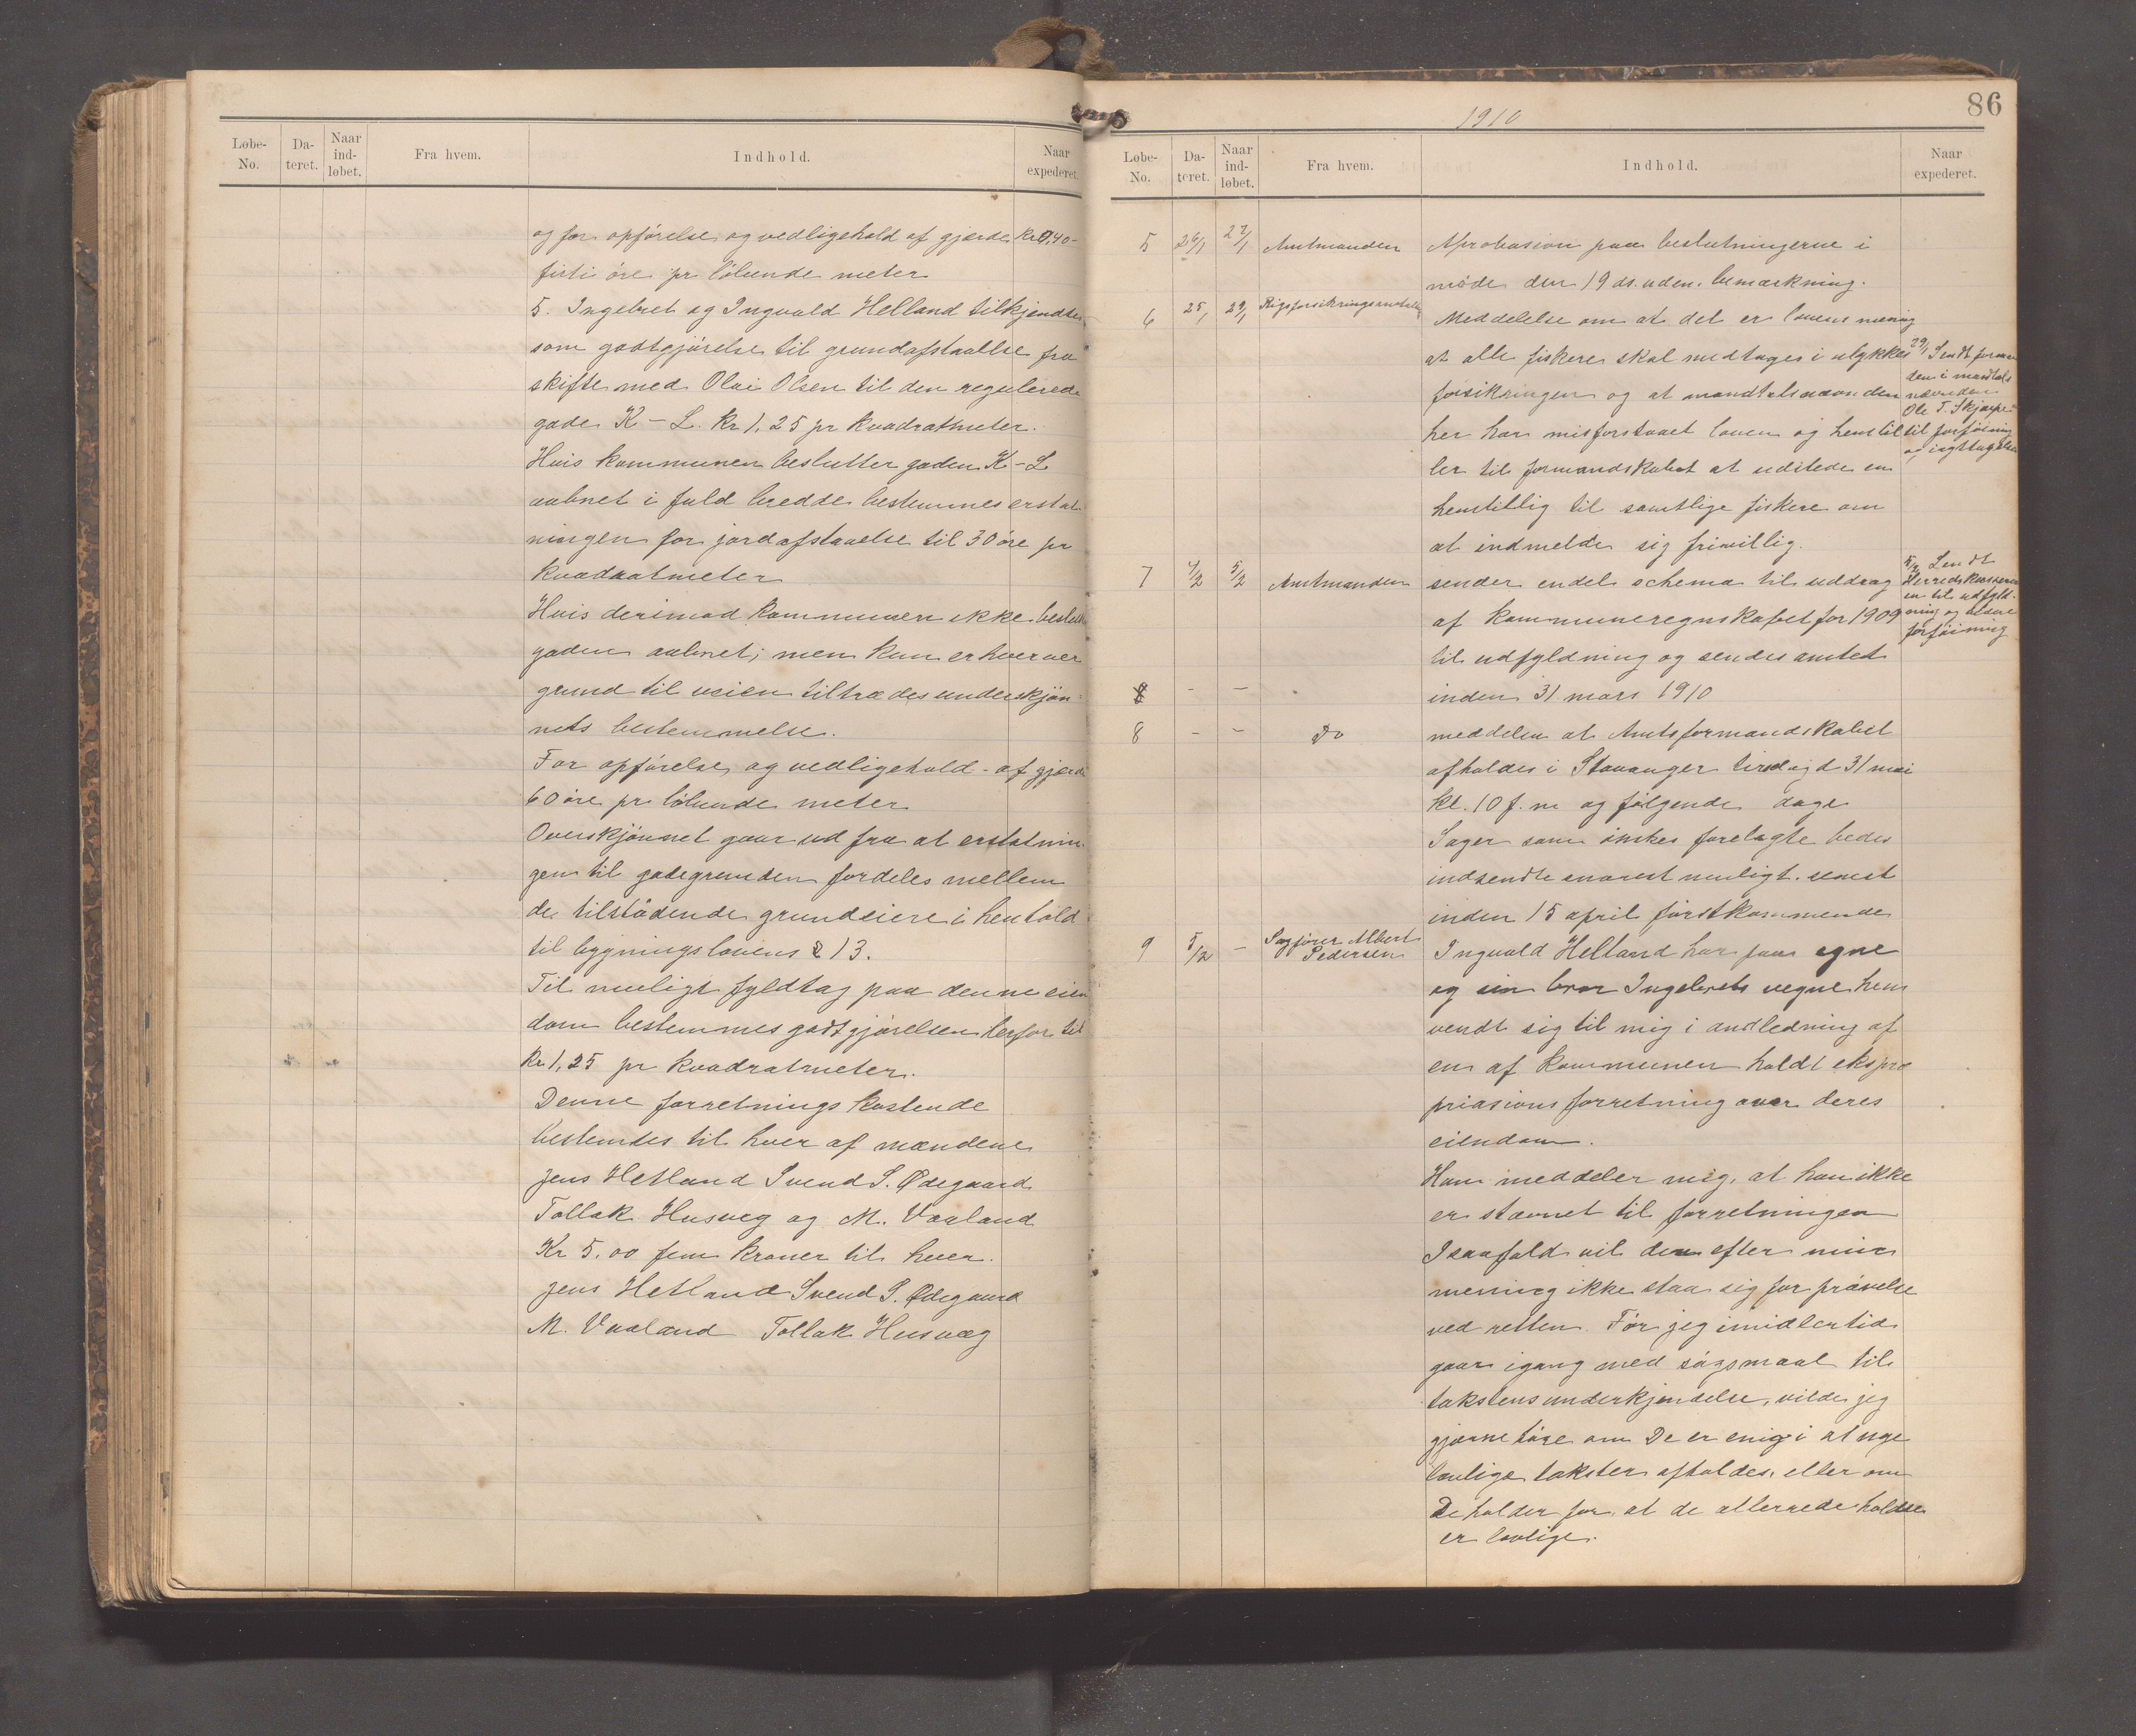 Løbe-
No.
Da-
teret.
Naar
ind-
løbet.
Fra hvem.
Indhold.
Naar
expederet.
og for opførelse og vedligehold af gjærde kr 0,40-
firti øre pr løbende meter
5. Ingebret og Ingvald Helland tilkjendtes
som godtgjørelse til grundafstaaelse fra
skifte med Olai Olsen til den regulerede
gade K - L. kr 1,25 pr kvadratmeter.
Hvis kommunen beslutter gaden K - L
aabnet i fuld bredde bestemmes erstat
ningen for jordafstaaelse til 30 øre pr
kvadratmeter
Hvis derimod kommunen ikke beslutter
gaden aabnet; men kun erhverver
grund til veien tiltrædes underskjøn-
nets bestemmelse.
For opførelse og vedligehold af gjærde
60 øre pr løbende meter
Overskjønnet gaar ud fra at erstatnin-
gen til gadegrunden fordeles mellem
de tilstødende grundeiere i henhold
til bygningslovens § 13.
Til muligt fyldtag paa denne eien
dom bestemmes godtgjørelsen herfor til
kr 1,25 pr kvadratmeter.
Denne forretnings kostende
bestemtes til hver af mændene
Jens Hetland Svend S. Ødegaard
Tollak Husveg og M. Vaaland
Kr 5.00 fem kroner til hver.
Jens Hetland Svend S. Ødegaard
M. Vaaland Tollak Husvæg
1910
86
Løbe-
No.
Da-
teret.
Naar
ind-
løbet.
Fra hvem.
Indhold.
Naar
expederet.
5 26/1 27/1 Amtmanden Aprobasion paa beslutningerne i
møde den 19 ds. uden bemærkning.
6 25/1 29/1 Rigsforsikringsanstalten Meddelelse om at det er lovens mening
at alle fiskere skal medtages i ulykkes
forsikringen og at mandtalsnævnden
her har misforstaaet loven og henstil
ler til formandskabet at udstede en
henstillig til samtlige fiskere om
at indmelde sig friwillig.
29/1 Sendt forman
den i mandtals
nævnden
Ole T. Skjæpe
til forføining
og iagttagelse
7 4/2 5/2 Amtmanden sender endel schema til uddrag
af kommuneregnskabet for 1909
til udfyldning og sendes amtet
inden 31 mars 1910
5/2 Sendt
Herredskasserer
en til udfyld-
ning og videre
forføining
8 - -
8 - - Do meddeler at Amtsformandskabet
afholdes i Stavanger tirsdag d 31 mai
kl. 10 f. m og følgende dage
Sager som ønskes forelagte bedes
indsendte snarest muligt. senest
inden 15 april førstkommende
9 5/2 - Sagfører Albert
Pedersen Ingvald Helland har paa egne
og sin bror Ingebrets vegne hen
vendt sig til mig i andledning af
en af kommunen holdt ekspro
priasions forretning over deres
eiendom.
Han meddeler mig, at han ikke
er stævnet til forretningen
I saafald vil den efter min
mening ikke staa sig for prøvelse
ved retten. Før jeg imidlertid
gaar igang med søgsmaal til
takstens underkjendelse, vilde jeg
gjærne høre om De er enig i at nye
lovlige takster afholdes, eller om
De holder for, at de allerrede holdte
er lovlige.